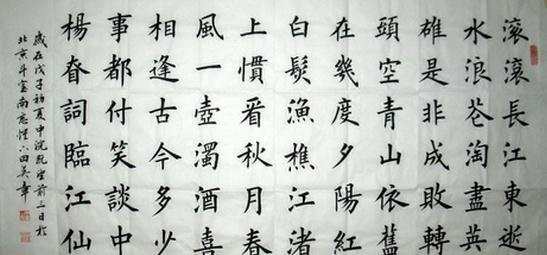 滾滾長江東逝
水浪花淘盡英
雄是非成敗轉
頭空青山依舊
在幾度夕陽紅
白髮漁樵江渚
上慣看秋月春
風一壺濁酒喜
相逢古今多少
事都付笑談中
楊眘詞臨江仙
歲在戊子初夏中浣既望前二日於
北京斗室南窓田英章